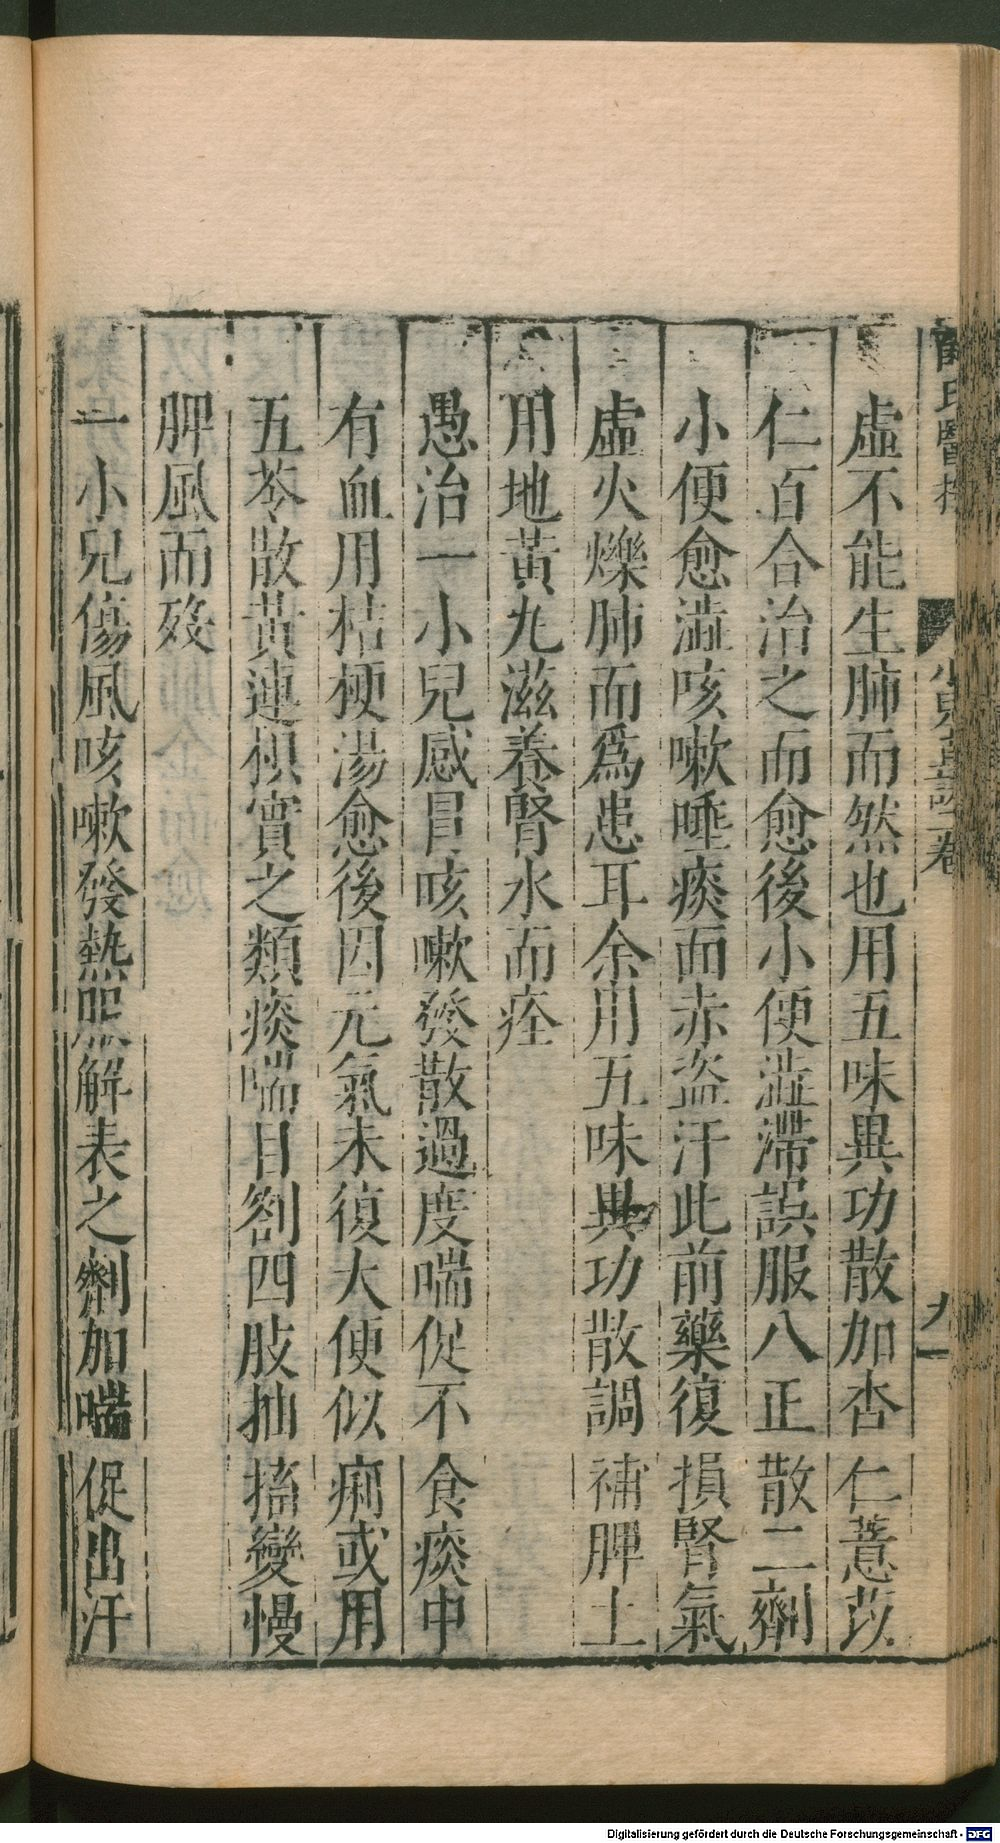 虛不能生肺而然也用五味異功散加杏仁薏苡
仁百合治之而愈後小便澁滯誤服八正散二劑
小便愈澁咳嗽唾痰面赤盗汗此前藥復損腎氣
虛火爍肺而爲患耳余用五味異功散調補脾土
用地黃丸滋養腎水而痊
愚治一小兒感冒咳嗽發散過度喘促不食痰中
有血用桔梗湯愈後因元氣未復大便似痢或用
五苓散黃連枳實之類痰喘目劄四肢抽搐變慢
脾風而殁
一小兒傷風咳嗽發熱服解表之劑加喘促出汗
氏醫按
卷
九
Digitalisierung gefördert durch die Deutsche Forschungsgemeinschaft - DFG